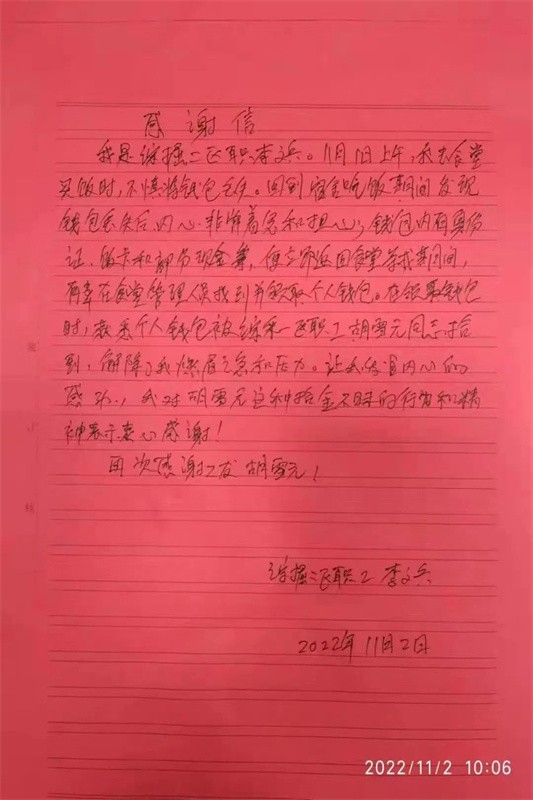 感谢信
我是综掘二区职李文兵。11月1日上午,我去食堂
买饭时,不慎将钱包丢失。回到宿舍吃饭期间发现
钱包丢失后内心非常着急和担心,钱包内有身份
证、银卡和部分现金等,便立即返回食堂寻找期间,
有幸在食堂管理人员找到并领取个人钱包。在领取钱包
时,敖悉个人钱包被综采一区职工胡雪元同志拾
到,解除了我燃眉之急和压力。让我发自内心的
感动,我对胡雪元这种拾金不昧的行为和精
神表示衷心感谢!
再次感谢工友胡雪元!
综掘二区职工 李文兵
2022年11月2日
2022/11/2 10:06